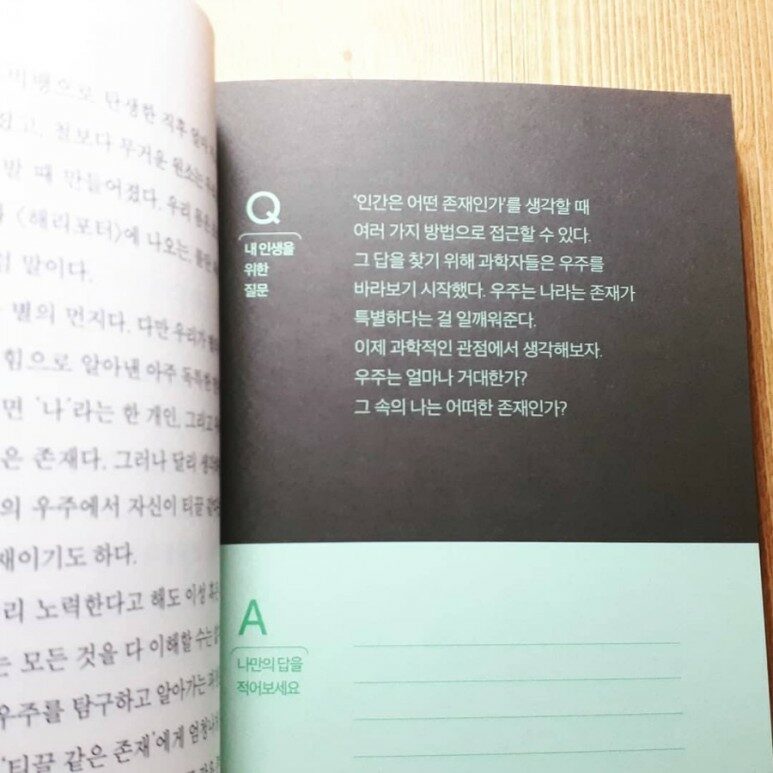 빅뱅으로 탄생한 직후
고, 철보다 무거운 원소는
발 때 만들어졌다. 우리 몸은
《해리포터》에 나오는,
말이다.
별의 먼지다. 다만 우리가
힘으로 알아낸 아주 독특한
면 '나'라는 한 개인, 그리고
은 존재다. 그러나 달리
의 우주에서 자신이 티끌
재이기도 하다.
리 노력한다고 해도 이성
는 모든 것을 다 이해할 수는
우주를 탐구하고 알아가는
'티끌 같은 존재'에게
Q
내 인생을
위한
질문
'인간은 어떤 존재인가'를 생각할 때
여러 가지 방법으로 접근할 수 있다.
그 답을 찾기 위해 과학자들은 우주를
바라보기 시작했다. 우주는 나라는 존재가
특별하다는 걸 일깨워준다.
이제 과학적인 관점에서 생각해보자.
우주는 얼마나 거대한가?
그 속의 나는 어떠한 존재인가?
A
나만의 답을
적어보세요